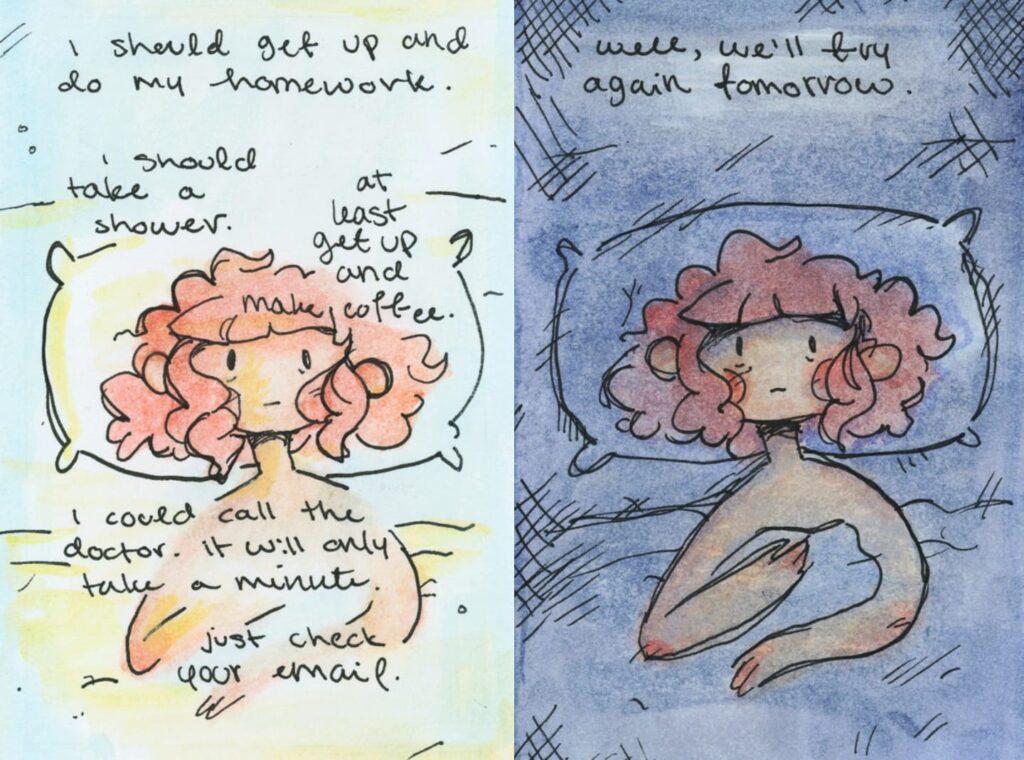 i should get up and
do my homework.
i should
take a
shower.
at
least
get up
and
make coffee.
i could call the
doctor. it will only
take a minute.
just check
your email.
well, we'll try
again tomorrow.